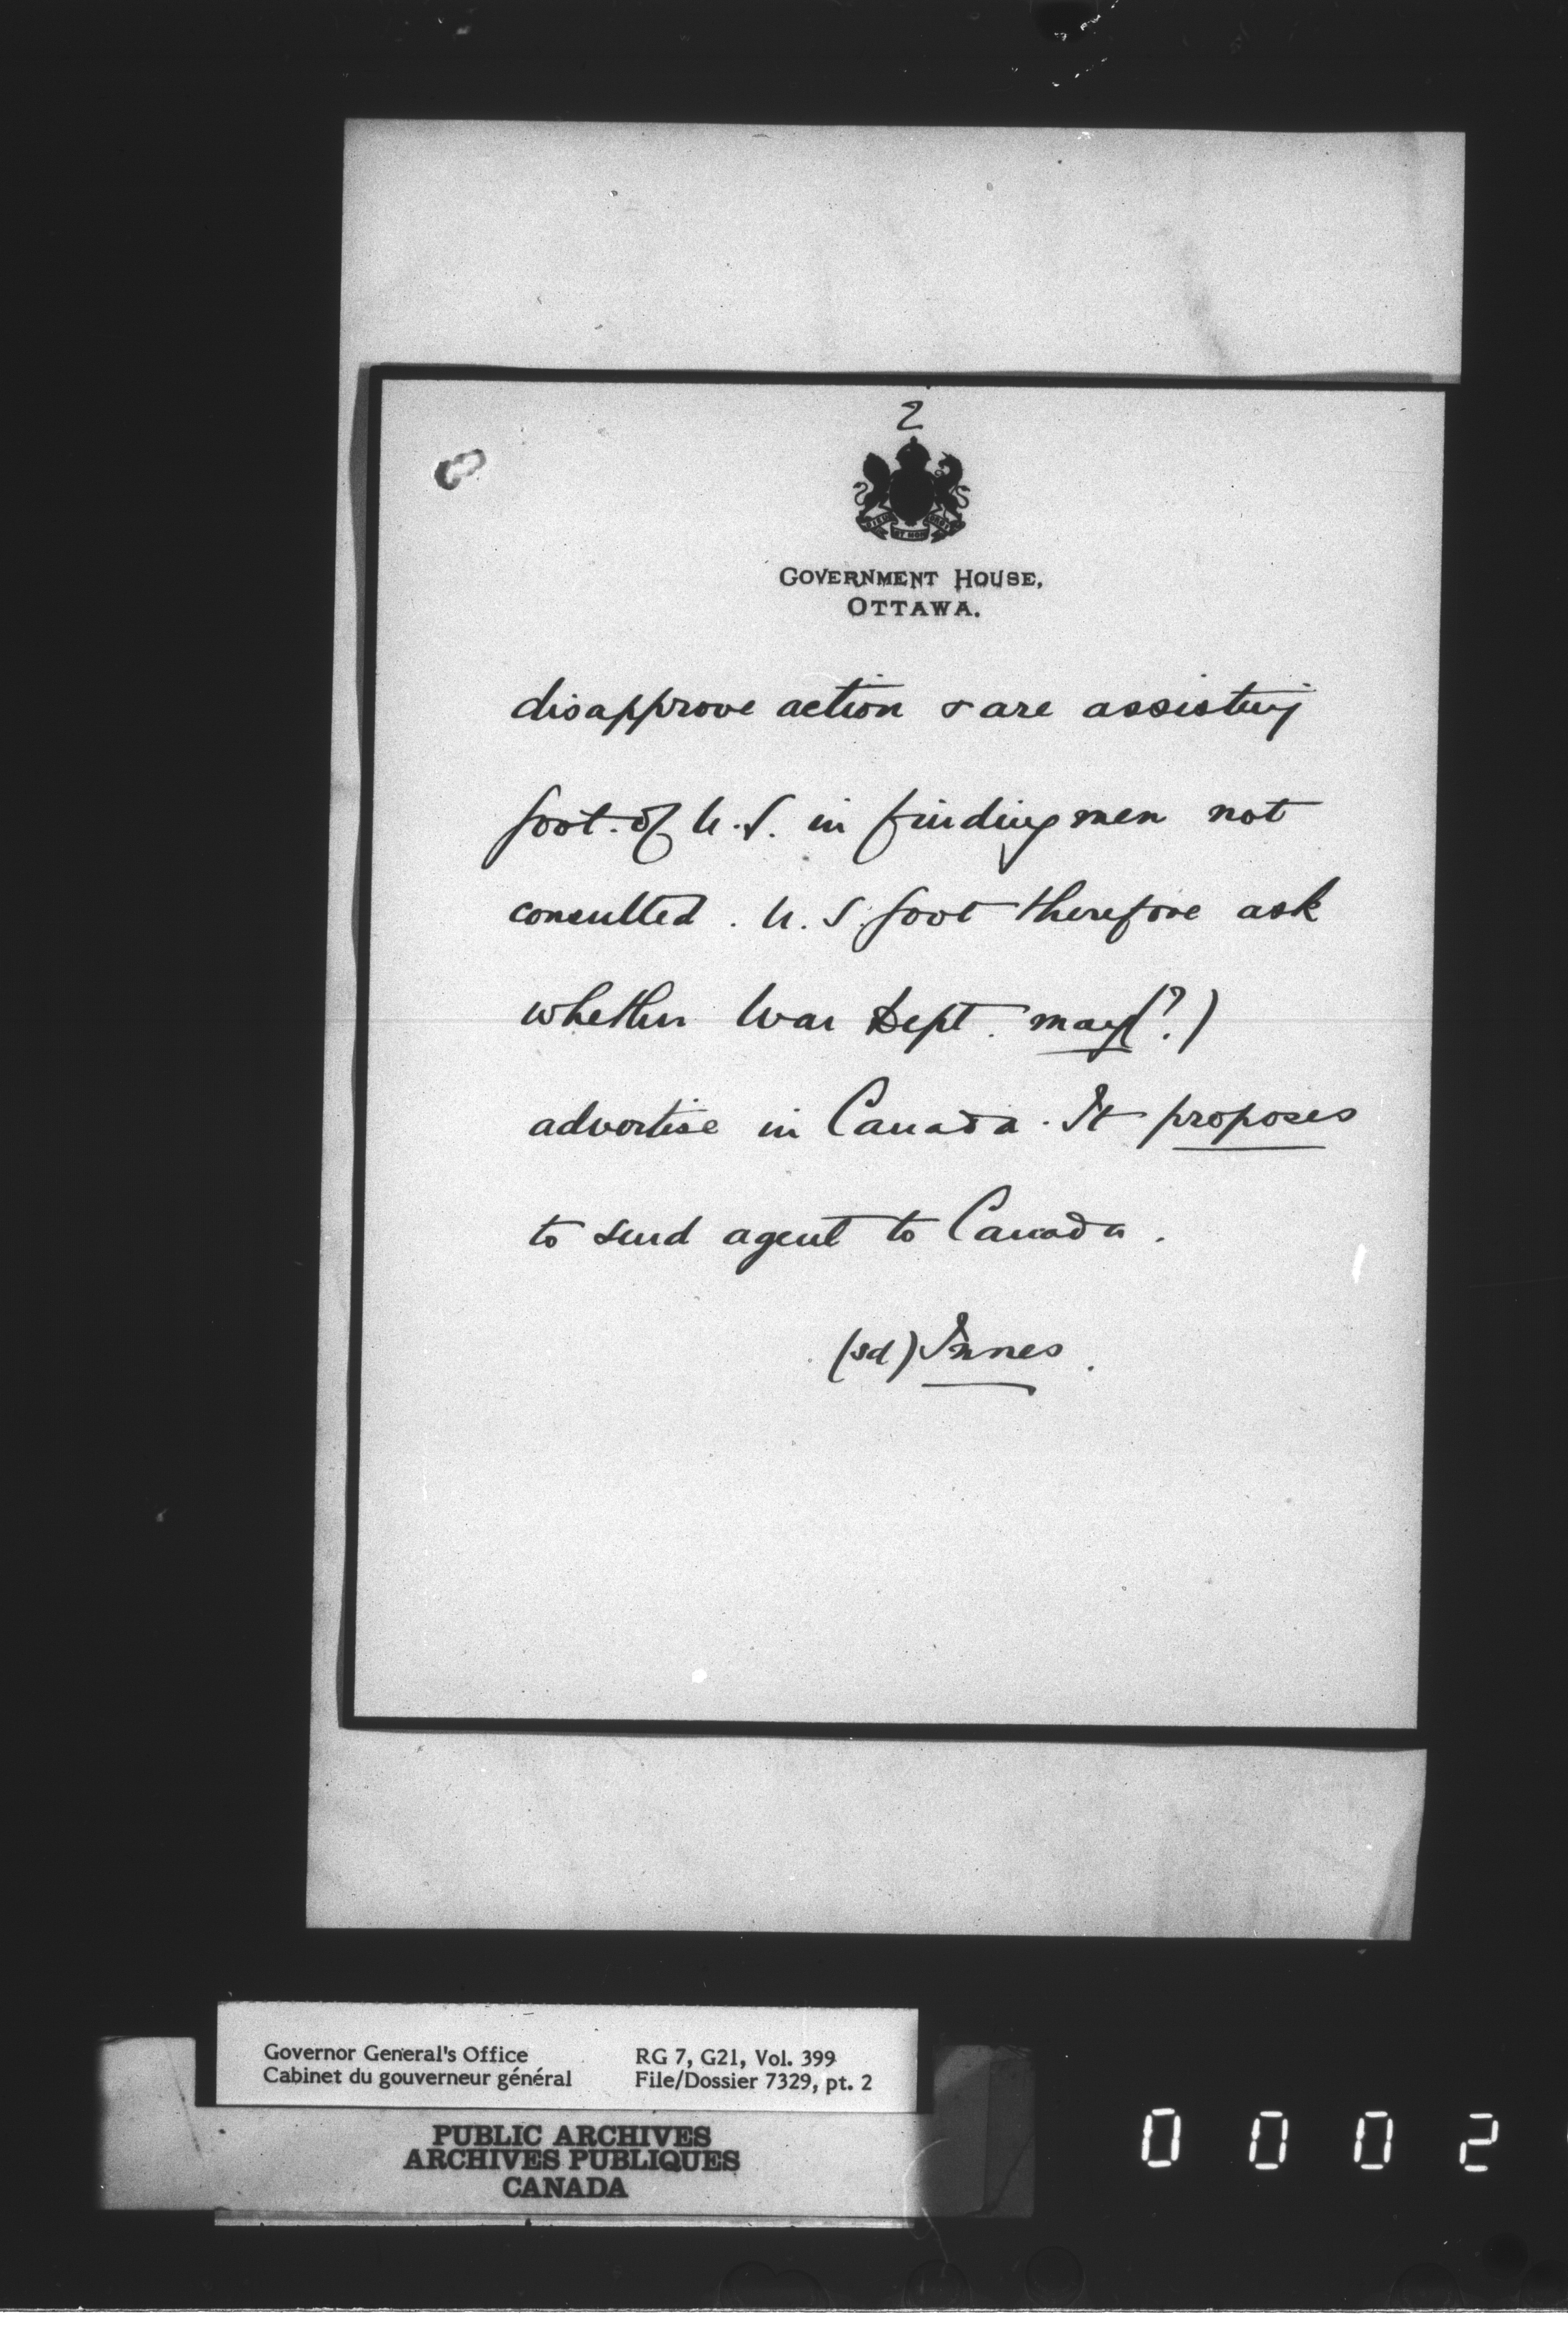 2
DIEU
ET MON
DROIT
GOVERNMENT HOUSE,
OTTAWA.
disapprove action & are assisting
Govt. of U.S. in finding men not
consulted. U.S. Govt therefore ask
whether War Dept. may(?)
advertise in Canada. It proposes
to send agent to Canada.
(sd) Innes.
Governor General's Office
Cabinet du gouverneur général
RG 7, G21, Vol. 399
File/Dossier 7329, pt. 2
PUBLIC ARCHIVES
ARCHIVES PUBLIQUES
CANADA
0 0 0 2